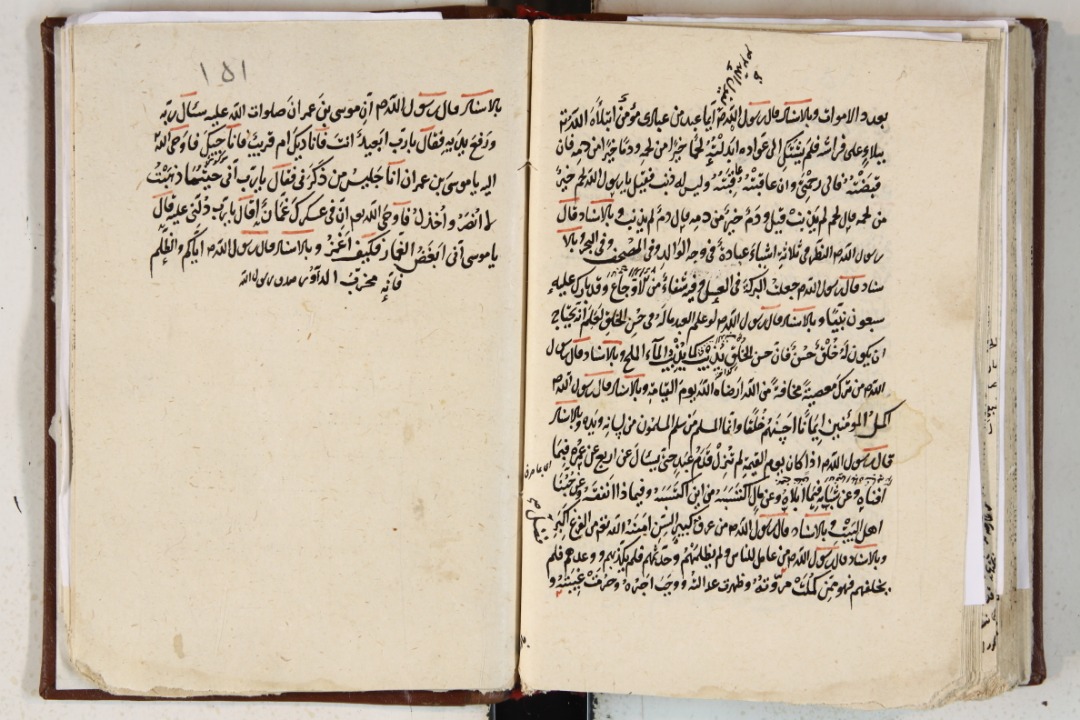 بعدد الاموات وبالاسناد قال رسول الله م ايما عبد من عبادى مؤمن ابتلاه الله تم
ببلاء على فراشه فلم يشتك الى عواده ابدلته لحما خيرا من لحمه ودما خيرا من دمه فان
قبضته فالى رحمتى وان عافيته عافيته وليس له ذنب فقيل يا رسول الله لحم خير
من لحمه قال لحم لم يذنب قيل ودم خير من دمه قال دم لم يذنب وبالاسناد قال
رسول الله م النظر فى ثلاثة اشياء عبادة فى وجه الوالد وفى المصحف وفى البحر بالا
سناد قال رسول الله م جعلت البركة فى العسل وفيه شفاء من الاوجاع وقد بارك عليه
سبعون نبيا وبالاسناد قال رسول الله م لو علم العبد ماله فى حسن الخلق لعلم انه يحتاج
ان يكون له خلق حسن فان حسن الخلق يذيب كما يذيب الماء الملح وبالاسناد قال رسول
الله م من ترك معصية مخافة من الله ارضاه الله يوم القيامة وبالاسناد قال رسول الله م
اكمل المؤمنين ايمانا احسنهم خلقا وانما المسلم من سلم المسلمون من لسانه ويده وبالاسناد
قال رسول الله م اذا كان يوم القيمة لم تنزل قدم عبد حتى يسال عن اربع عن عمره فيما
افناه وعن شبابه فيما ابلاه وعن مال اكتسبه من اين اكتسبه وفيما ذا انفقه وعن حبنا
اهل البيت وبالاسناد قال رسول الله م من عرف كبير السن امنه الله تعم من الفزع الاكبر
وبالاسناد قال رسول الله م من عامل للناس ولم يظلمهم وحدثهم فلم يكذبهم ووعدهم فلم
يخلفهم فهو ممن كملت مروته وظهرت عدالته ووجب اجره وحرمت غيبته و
١٥١
بالاسناد قال رسول الله م ان موسى بن عمران صلوات الله عليه سئال ربه
ورفع يديه فقال يا رب ابعيد انت فاناديك ام قريب فاناجيك فاوحى الله
اليه يا موسى بن عمران انا جليس من ذكرنى فقال يا رب انى حيثما ذهبت
فاوحى الله يوم ان فى عسكرك غمازا قال يا رب دلنى عليه قال
يا موسى انى ابغض الغماز فكيف اغمز وبالاسناد قال رسول الله م اياكم والظلم
فانه مخرب صدق رسول الله